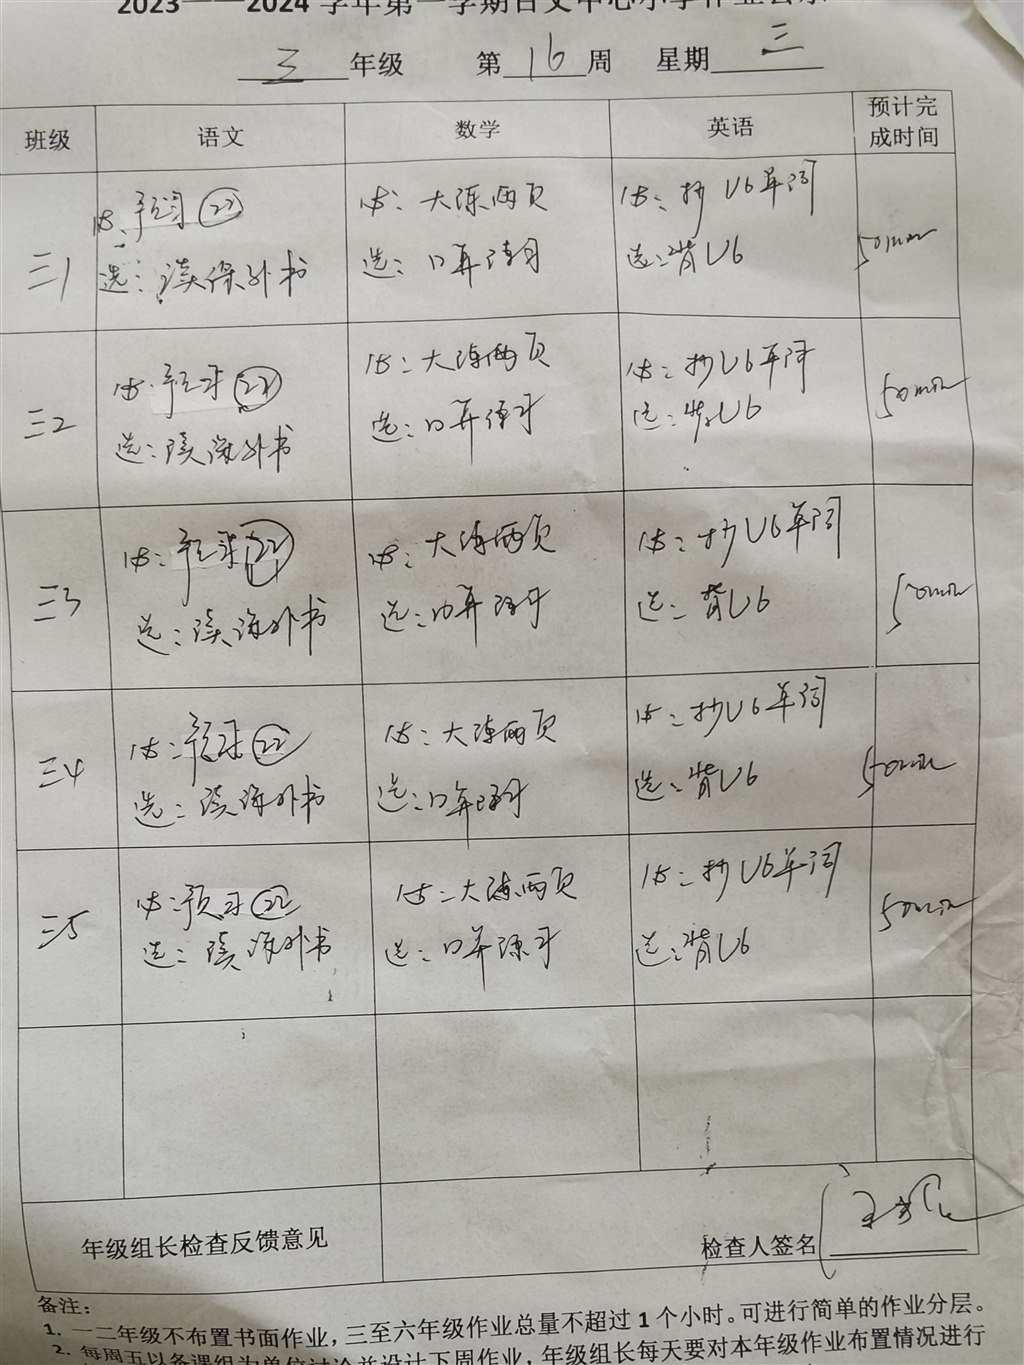 2023——2024学年第一学期
三 年级 第 16 周 星期 三
班级 语文 数学 英语 预计完成时间
三1
必:预习㉒
选:读课外书
必:大练两页
选:口算练习
必:抄U6单词
选:背U6
50min
三2
必:预习㉒
选:读课外书
必:大练两页
选:口算练习
必:抄U6单词
选:背U6
50min
三3
必:预习㉒
选:读课外书
必:大练两页
选:口算练习
必:抄U6单词
选:背U6
50min
三4
必:预习㉒
选:读课外书
必:大练两页
选:口算练习
必:抄U6单词
选:背U6
50min
三5
必:预习㉒
选:读课外书
必:大练两页
选:口算练习
必:抄U6单词
选:背U6
50min
年级组长检查反馈意见
检查人签名
备注:
1. 一二年级不布置书面作业,三至六年级作业总量不超过1个小时。可进行简单的作业分层。
2. 每周五以备课组为单位讨论并设计下周作业,年级组长每天要对本年级作业布置情况进行